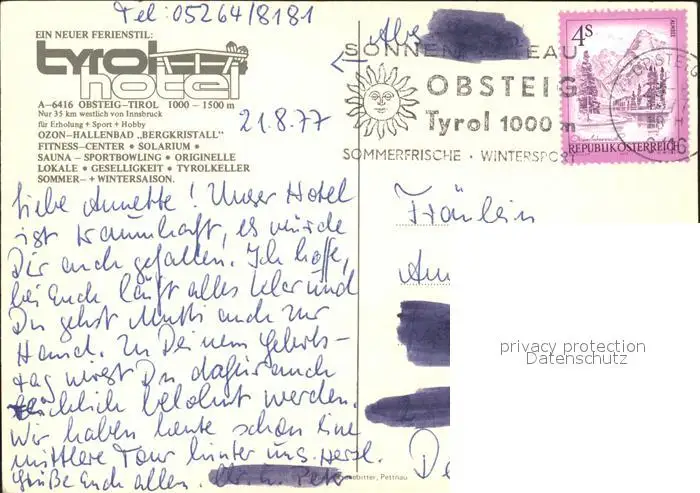 Tel: 05264/8181
EIN NEUER FERIENSTIL:
tyrol
hotel
A-6416 OBSTEIG-TIROL 1000 - 1500 m
Nur 35 km westlich von Innsbruck
für Erholung + Sport + Hobby
OZON-HALLENBAD „BERGKRISTALL"
FITNESS-CENTER • SOLARIUM •
SAUNA - SPORTBOWLING • ORIGINELLE
LOKALE • GESELLIGKEIT • TYROLKELLER
SOMMER- + WINTERSAISON.
21.8.77
Liebe Annette! Unser Hotel
ist traumhaft, es würde
Dir auch gefallen. Ich hoffe,
bei Euch läuft alles klar und
Du gehst Mutti auch zur
Hand. Zu Deinem Geburts-
tag wirst Du dafür auch
reichlich belohnt werden.
Wir haben heute schon eine
mittlere Tour hinter uns. Herzl.
Grüße Euch allen.
Abs
OBSTEIG
Tyrol 1000 m
SOMMERFRISCHE · WINTERSPORT
4S
REPUBLIK ÖSTERREICH
Fräulein
privacy protection
Datenschutz
Pettnau